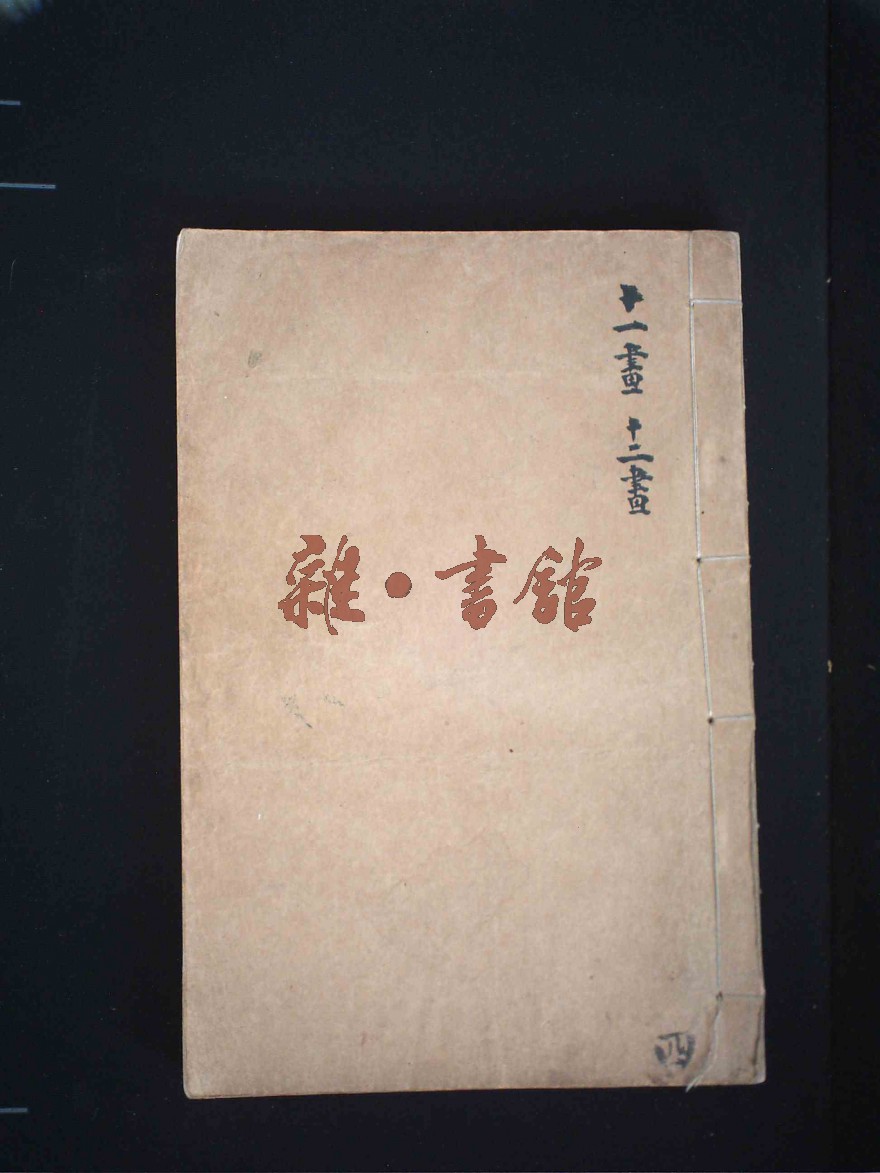 十一畫 十二畫
雜·書館
四